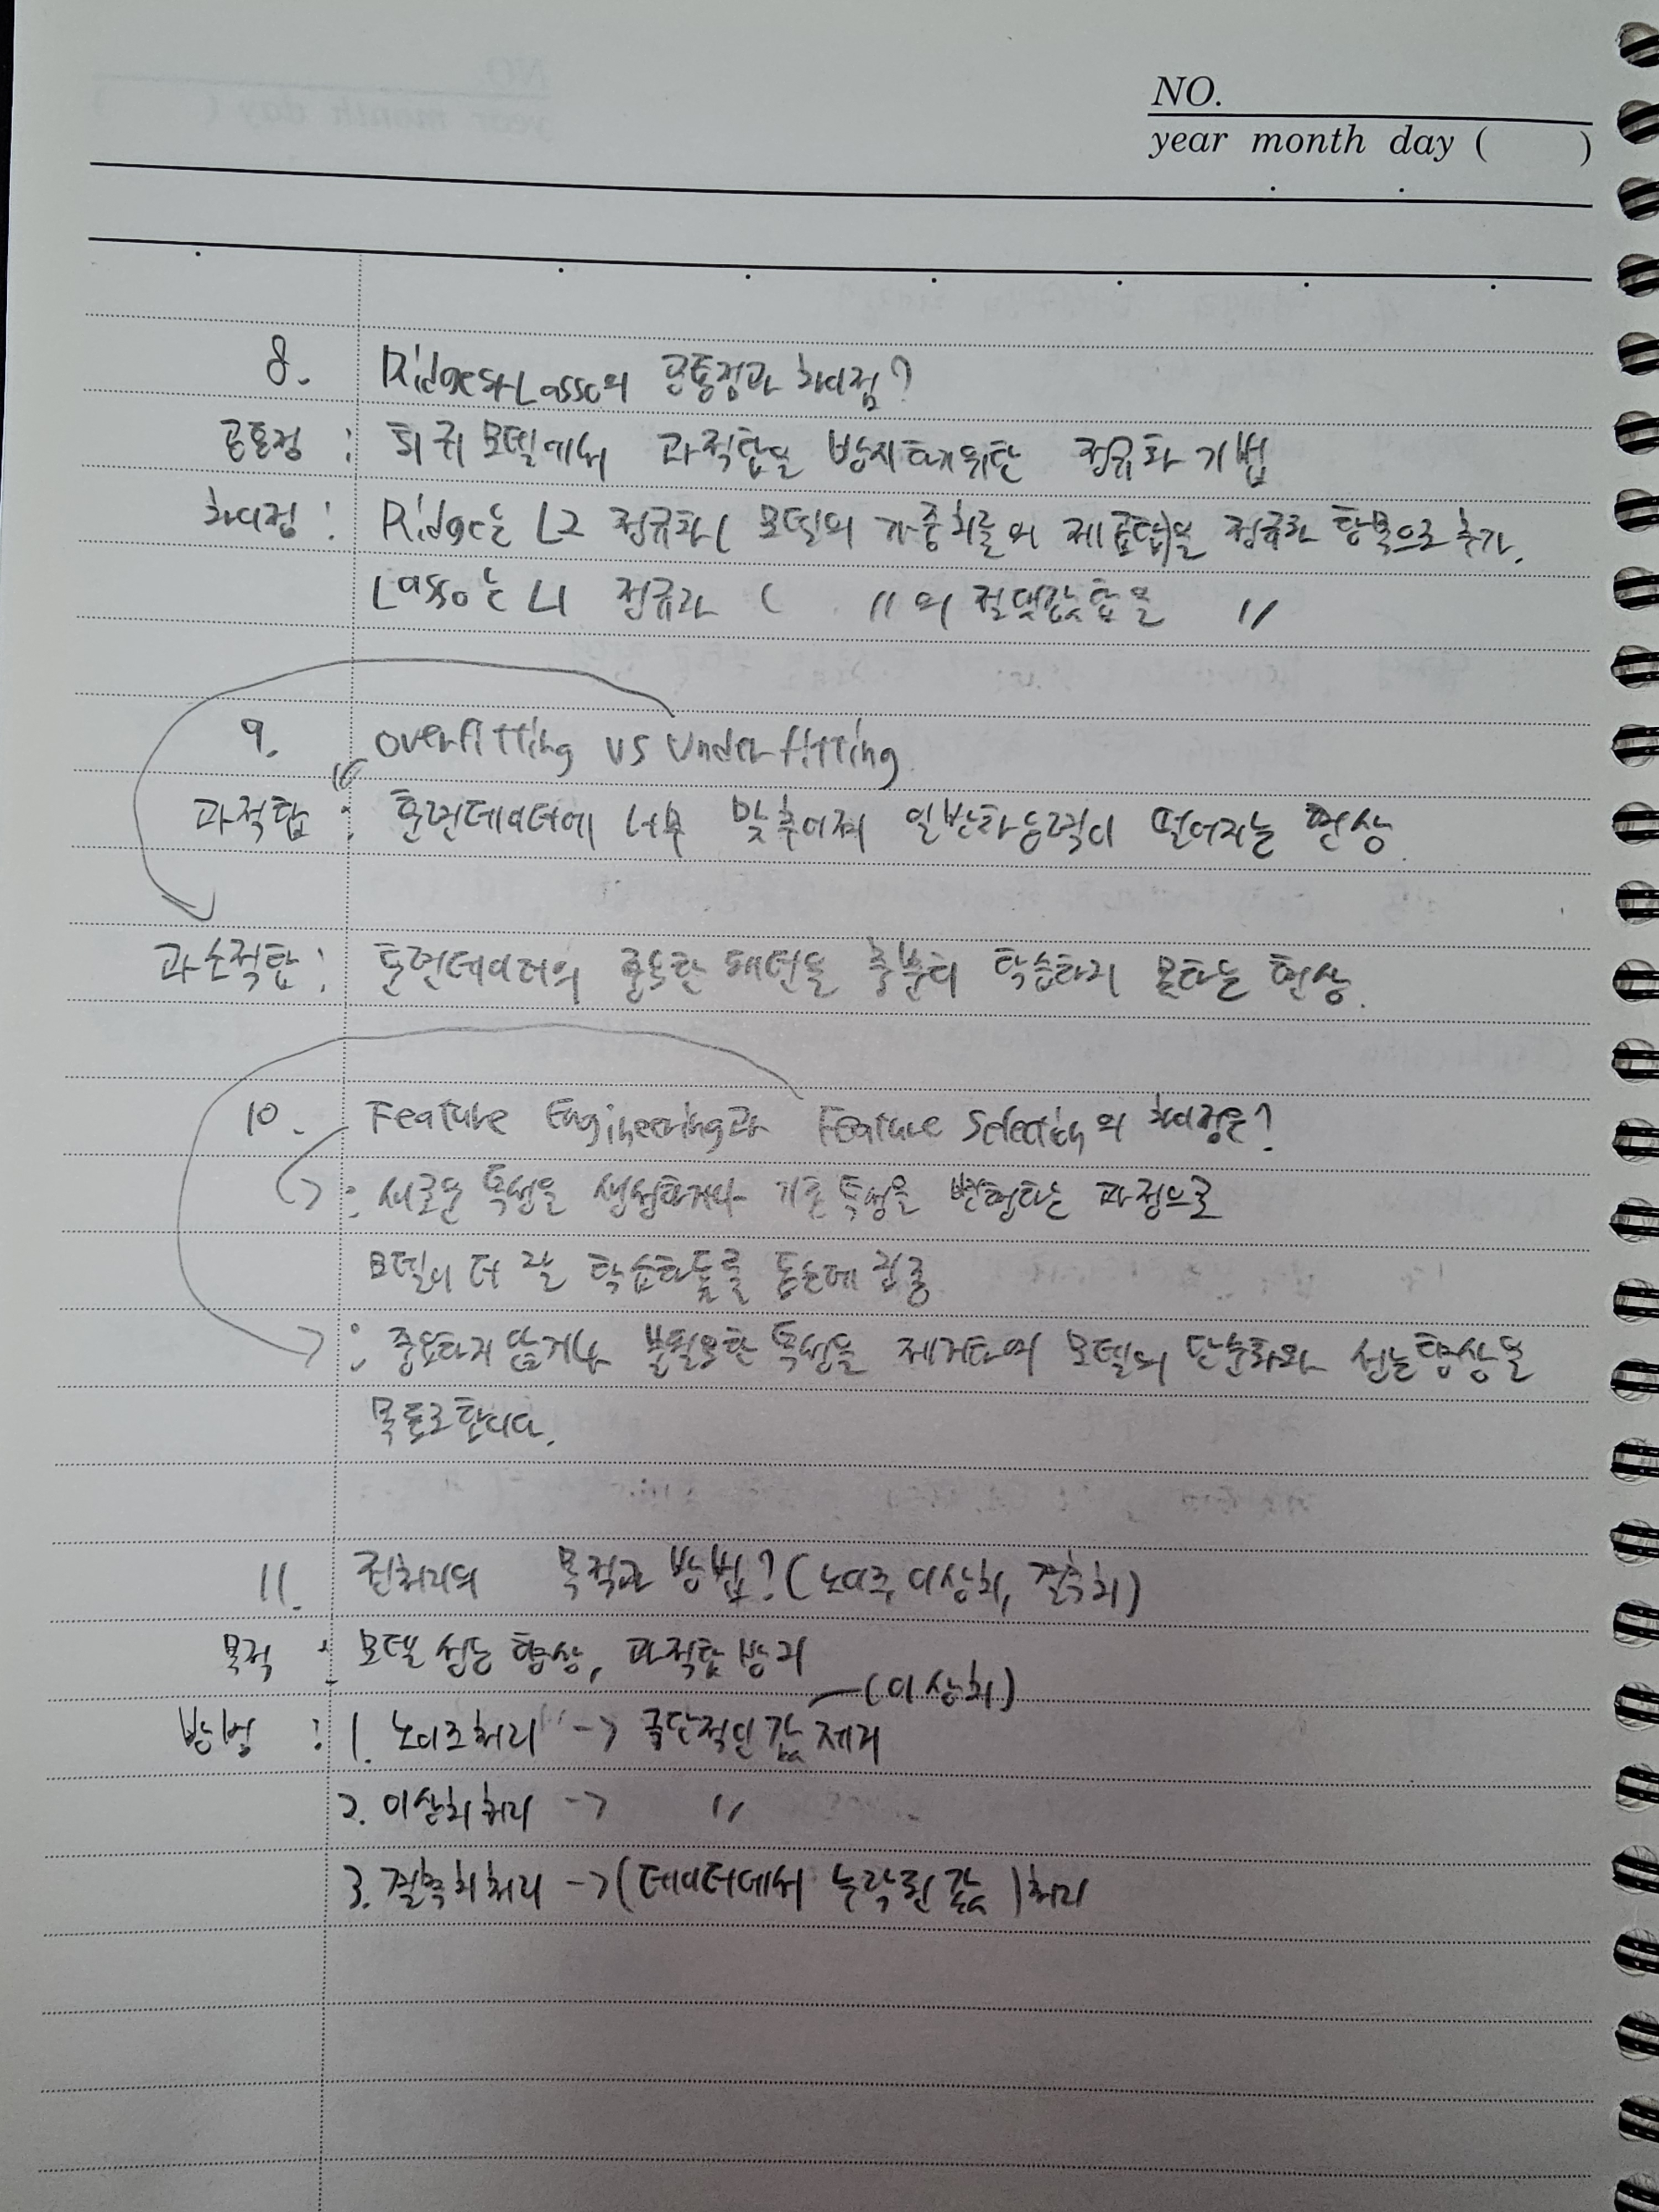 NO.
year month day ( )
8. Ridge와 Lasso의 공통점과 차이점?
공통점 : 회귀 모델에서 과적합을 방지하기위한 정규화 기법
차이점 : Ridge는 L2 정규화 ( 모델의 가중치들의 제곱합)을 정규화 항목으로 추가.
Lasso는 L1 정규화 ( 〃의 절댓값합을 〃
9. Overfitting vs Underfitting
과적합 : 훈련데이터에 너무 맞추어져 일반화능력이 떨어지는 현상.
과소적합 : 훈련데이터의 중요한 패턴을 충분히 학습하지 못하는 현상.
10. Feature Engineering과 Feature Selection의 차이점은?
: 새로운 특성을 생성하거나 기존 특성을 변형하는 과정으로
모델이 더 잘 학습하도록 돕는데 집중
: 중요하지 않거나 불필요한 특성을 제거하여 모델의 단순화와 성능향상을
목표로합니다.
11. 전처리의 목적과 방법? (노이즈, 이상치, 결측치)
목적 : 모델 성능 향상, 과적합 방지
(이상치)
방법 : 1. 노이즈처리 -> 극단적인 값 제거
2. 이상치 처리 -> 〃
3. 결측치처리 -> (데이터에서 누락된 값) 처리